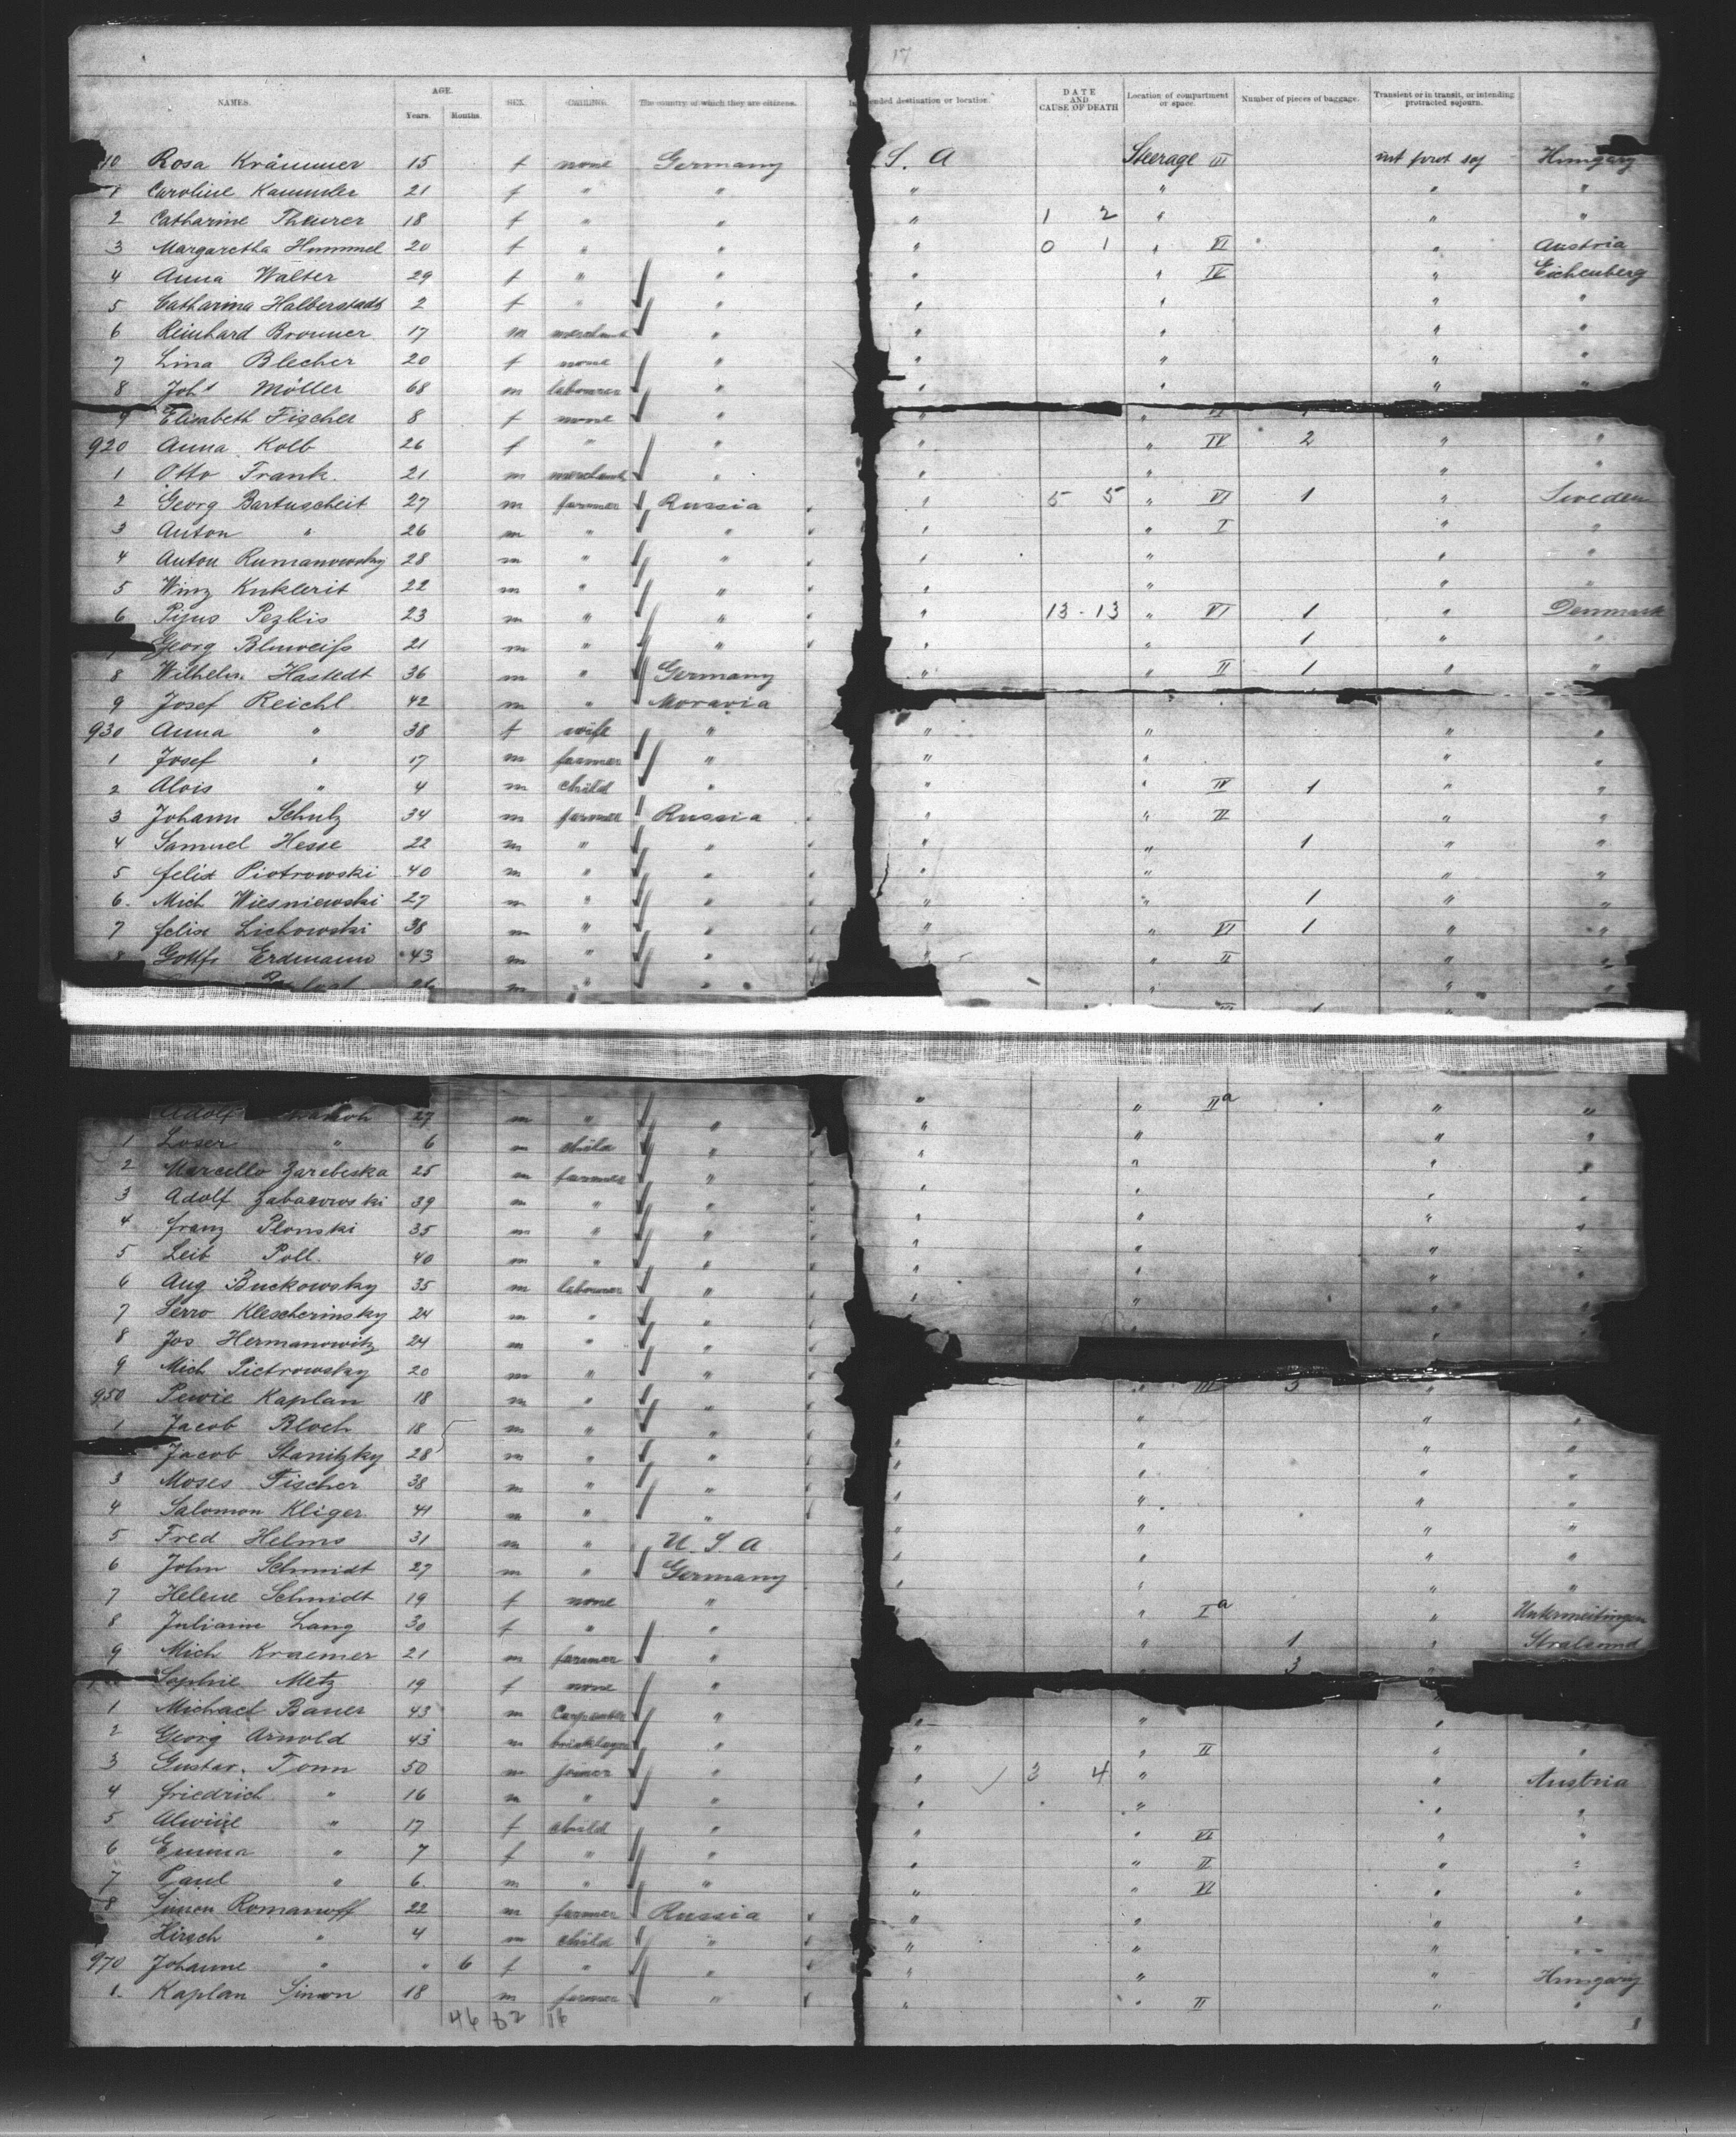 17
NAMES. AGE. SEX. CALLING. The country of which they are citizens. Intended destination or location. DATE AND CAUSE OF DEATH Location of compartment or space. Number of pieces of baggage. Transient or in transit, or intending protracted sojourn.
Years. Months.
10 Rosa Krämmer 15 f none Germany S. A Steerage III int prot soj Hungary
1 Caroline Kammler 21 f " " " " " "
2 Catharine Theurer 18 f " " " 1 2 " " "
3 Margaretha Hummel 20 f " " " 0 1 " VI " Austria
4 Anna Walter 29 f " " " " IV " Eichenberg
5 Catharina Halberstadt 2 f " " " " " "
6 Reinhard Bronner 17 m merchant " " " " "
7 Lina Blecher 20 f none " " " " "
8 Johs Möller 68 m labourer " " " " "
9 Elisabeth Fischer 8 f none " " " VI
920 Anna Kolb 26 f " " " " IV 2 " "
1 Otto Frank 21 m merchant " " " " "
2 Georg Bartuscheit 27 m farmer Russia " 5 5 " VI 1 " Sweden
3 Anton " 26 m " " " " I " "
4 Anton Rumanowsky 28 m " " " " " "
5 Winz Kuklerit 22 m " " " " " "
6 Pijus Pezkis 23 m " " " 13 - 13 " VI 1 " Denmark
Georg Blumeiss 21 m " " " " 1 " "
8 Wilhelm Hastedt 36 m " Germany " " II 1 " "
9 Josef Reichl 42 m " Moravia
930 Anna " 38 f wife " " " " "
1 Josef " 17 m farmer " " " " "
2 Alois " 4 m child " " " IV 1 " "
3 Johann Schulz 34 m farmer Russia " " II " "
4 Samuel Hesse 22 m " " " " 1 " "
5 felix Piotrowski 40 m " " " " " "
6. Mich Wiesniewski 27 m " " " " 1 " "
7 felix Lichowski 38 m " " " " VI 1 " "
8 Gottfr Erdmann 43 m " " " II " "
26 m " " " " "
Adolf 27 m " " " " IIa " "
1 Loser " 6 m child " " " " "
2 Marcello Zarebiska 25 m farmer " " " " "
3 Adolf Zabarowski 39 m " " " " " "
4 franz Plonski 35 m " " " " " "
5 Leib Poll. 40 m " " " " " "
6 Aug Buckowsky 35 m labourer " " " " "
7 Serro Klescherinsky 24 m " " " " " "
8 Jos Hermanowitz 24 m " " " "
9 Mich Pietrowsky 20 m " "
950 Pewie Kaplan 18 m " " " III 3 "
1 Jacob Bloch 18 m " " " " "
Jacob Stanitzky 28 m " " " " " "
3 Moses Fischer 38 m " " " " " "
4 Salomon Kliger 41 m " " " " " "
5 Fred Helms 31 m " U. S. A " " " "
6 John Schmidt 27 m " Germany " " " "
7 Helene Schmidt 19 f none " " " " "
8 Juliann Lang 30 f " " " Ia " Untermeitingen
9 Mich Kraemer 21 m farmer " " 1 " Stralsund
Sophie Metz 19 f none " " 3 "
1 Michael Bauer 43 m Carpenter " " " " "
2 Georg Arnold 43 m bricklayer " " " II " "
3 Gustav. Tonn 50 m joiner " " 3 4 " " Austria
4 friedrich " 16 m " " " " " "
5 Alwine " 17 f child " " " VI " "
6 Emma " 7 f " " " " II " "
7 Paul " 6. m " " " " VI " "
8 Simon Romanoff 22 m farmer Russia " " " "
Hirsch " 4 m child " " " " "
970 Johanne " " 6 f " " " " " Hungary
1. Kaplan Simon 18 m farmer " " " II " "
46 62 16